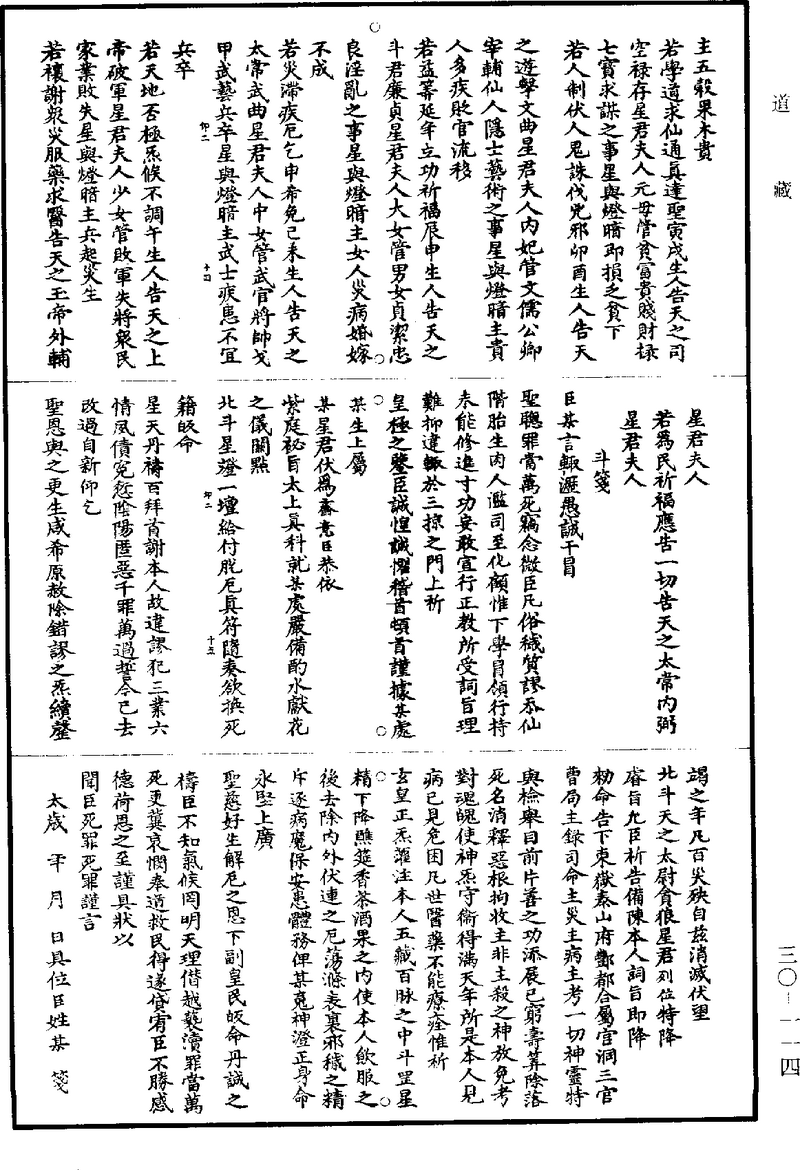 道藏
主五穀果木貴
若學道求仙通真達聖寅戌生人告天之司
空祿存星君夫人元母管貧富貴賤財祿
七寶求謀之事星與燈暗即損乏貧下
若人制伏人鬼誅伐兇邪卯酉生人告天
之遊擊文曲星君夫人內妃管文儒公卿
宰輔仙人隱士藝術之事星與燈暗主貴
人多疾敗官流移
若益筭延年立功祈福辰申生人告天之
斗君廉貞星君夫人大女管男女貞潔忠
良淫亂之事星與燈暗主女人災病婚嫁
不成
若災滯疾厄乞申希免巳未生人告天之
太常武曲星君夫人中女管武官將帥戈
甲武藝兵卒星與燈暗主武士疾患不宜
卯二
十四
兵卒
若天地否極炁候不調午生人告天之上
帝破軍星君夫人少女管敗軍失將眾民
家業敗失星與燈暗主兵起災生
若禳謝眾災服藥求醫告天之玉帝外輔
星君夫人
若為民祈福應告一切告天之太常內弼
星君夫人
斗箋
臣某言輙瀝愚誠干冒
聖聰罪當萬死竊念微臣凡俗穢質謬忝仙
階胎生肉人濫司至化顧惟下學冒領行持
未能修進寸功妄敢宣行正教所受詞旨理
難抑違輙於三掠之門上祈
皇極之鑒臣誠惶誠懼稽首頓首謹據某處
某生上屬
某星君伏為齋意臣恭依
紫庭祕旨太上真科就某處嚴備酌水獻花
之儀關點
北斗星燈一壇給付脫厄真符隨奏欲換死
卯二
十五
籍皈命
星天丹禱百拜首謝本人故違謬犯三業六
情風債冤愆陰陽匿惡千罪萬過誓令已去
改過自新仰乞
聖恩與之更生咸希原赦除錯謬之炁續罄
竭之年凡百災殃自茲消滅伏望
北斗天之太尉貪狼星君列位特降
睿旨允臣祈告備陳本人詞旨即降
勑命告下東嶽泰山府酆都合屬官洞三官
曹局主錄司命主災主病主考一切神靈特
與檢舉目前片善之功添展已窮壽筭除落
死名消釋惡根拘收主非主殺之神放免考
對魂魄使神炁守衛得滿天年所是本人見
病已見危困凡世醫藥不能療痊惟祈
玄皇正炁灌注本人五藏百脉之中斗罡星
精下降醮筵香茶酒果之內使本人飲服之
後去除內外伏連之厄蕩滌表裏邪穢之精
斥逐病魔保安患體務俾某冤神澄正身命
永堅上廣
聖慈好生解厄之恩下副皇民皈命丹誠之
禱臣不知氣候罔明天理僭越褻瀆罪當萬
死更冀哀憫奉道救民得遂貸宥臣不勝感
德荷恩之至謹具狀以
聞臣死罪死罪謹言
太歲 年 月 日具位臣姓某 箋
三〇－一一四